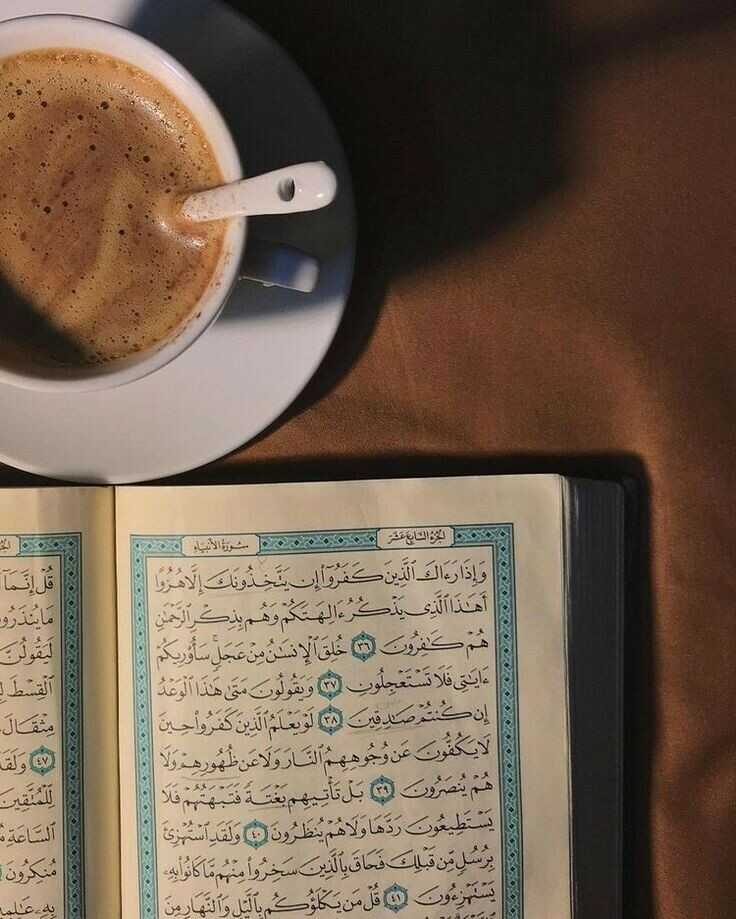 الجزء السابع عشر
سورة الأنبياء
وَإِذَا رَءَاكَ ٱلَّذِينَ كَفَرُوٓا۟ إِن يَتَّخِذُونَكَ إِلَّا هُزُوًا
أَهَـٰذَا ٱلَّذِى يَذْكُرُ ءَالِهَتَكُمْ وَهُم بِذِكْرِ ٱلرَّحْمَـٰنِ
هُمْ كَـٰفِرُونَ ٣٦ خُلِقَ ٱلْإِنسَـٰنُ مِنْ عَجَلٍ ۚ سَأُو۟رِيكُمْ
ءَايَـٰتِى فَلَا تَسْتَعْجِلُونِ ٣٧ وَيَقُولُونَ مَتَىٰ هَـٰذَا ٱلْوَعْدُ
إِن كُنتُمْ صَـٰدِقِينَ ٣٨ لَوْ يَعْلَمُ ٱلَّذِينَ كَفَرُوا۟ حِينَ
لَا يَكُفُّونَ عَن وُجُوهِهِمُ ٱلنَّارَ وَلَا عَن ظُهُورِهِمْ وَلَا
هُمْ يُنصَرُونَ ٣٩ بَلْ تَأْتِيهِم بَغْتَةً فَتَبْهَتُهُمْ فَلَا
يَسْتَطِيعُونَ رَدَّهَا وَلَا هُمْ يُنظَرُونَ ٤٠ وَلَقَدِ ٱسْتُهْزِئَ
بِرُسُلٍ مِّن قَبْلِكَ فَحَاقَ بِٱلَّذِينَ سَخِرُوا۟ مِنْهُم مَّا كَانُوا۟ بِهِۦ
يَسْتَهْزِءُونَ ٤١ قُلْ مَن يَكْلَؤُكُم بِٱلَّيْلِ وَٱلنَّهَارِ مِنَ
قُلْ إِنَّمَآ
مَا يُنذَرُو
لَيَقُولُنَّ
ٱلْقِسْطَ لِ
مِثْقَالَ
٤٧ وَلَقَدْ
لِّلْمُتَّقِينَ
ٱلسَّاعَةِ مُ
مُنكِرُونَ
بِهِۦ عَـٰلِمِي